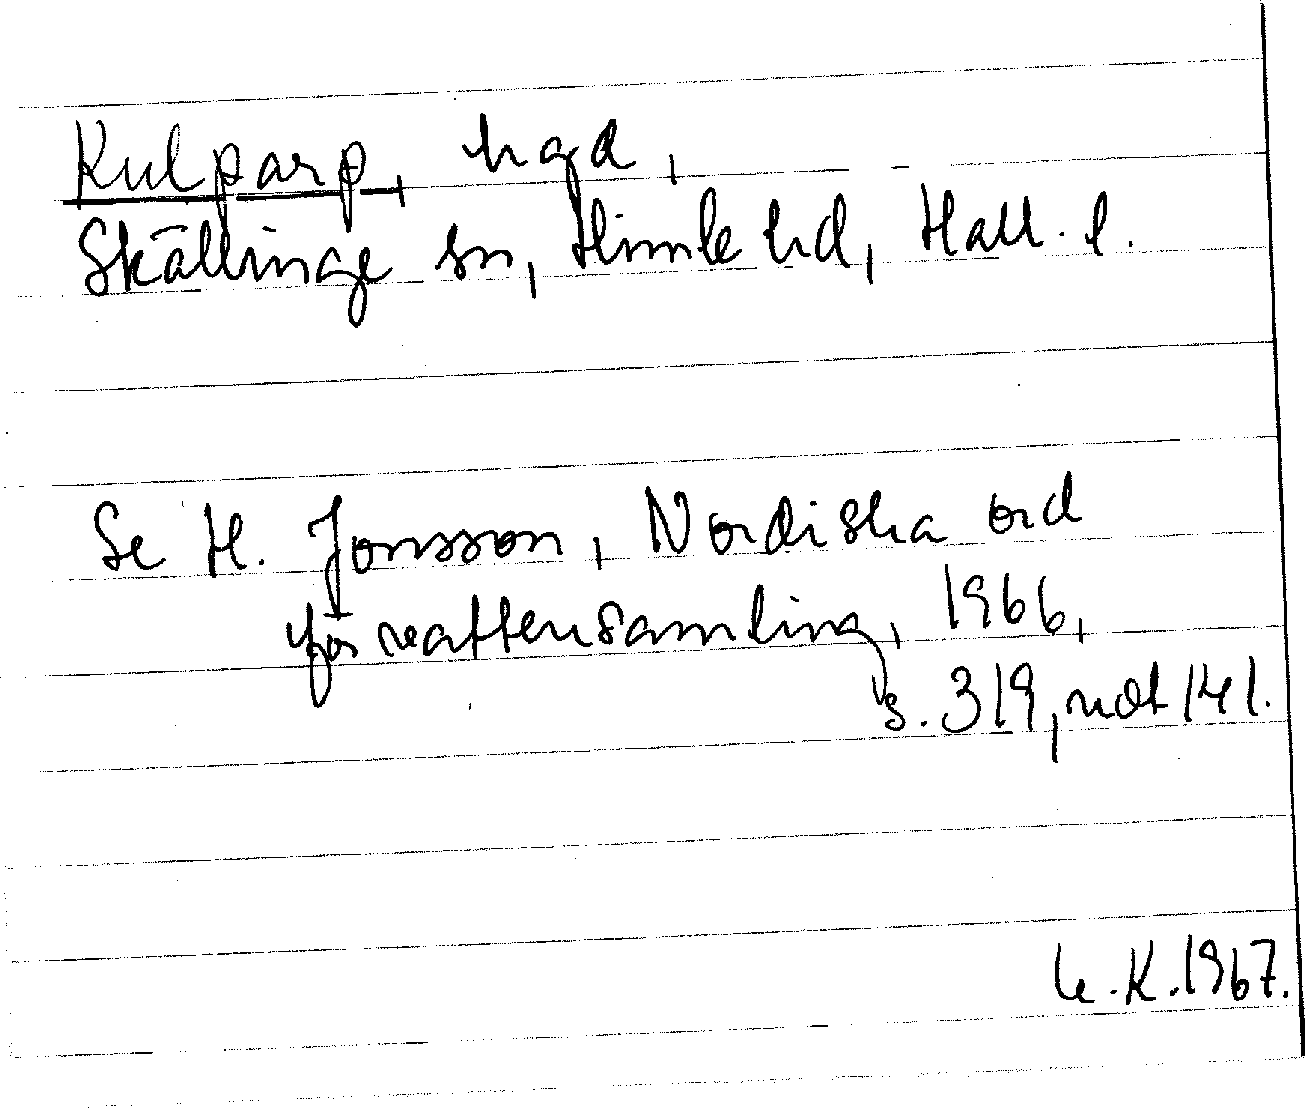 Kulparp, hgd,
Skällinge sn, Himle hd, Hall. l.
Se H. Jonsson, Nordiska ord
för vattensamling, 1966,
s. 319, not 141.
K. 1967.